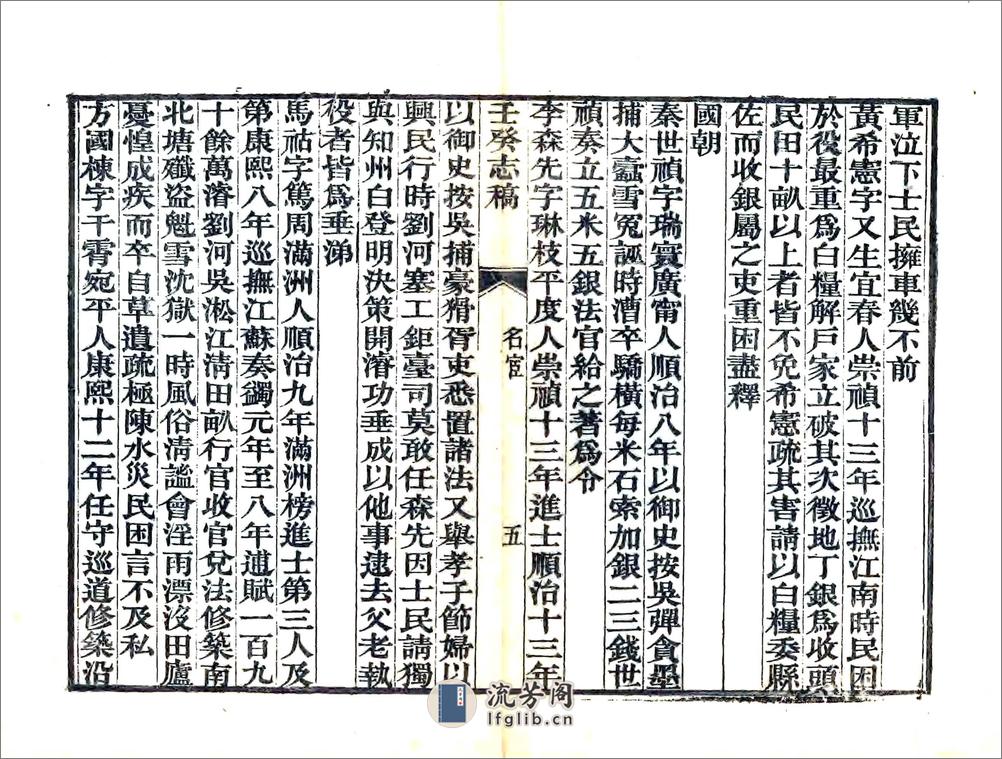 軍泣下士民擁車幾不前
黃希憲字又生宜春人崇禎十三年巡撫江南時民困
於役最重爲白糧解戶家立破其次徵地丁銀爲收頭
民田十畝以上者皆不免希憲疏其害請以白糧委縣
佐而收銀屬之吏重困盡釋
國朝
秦世禎字瑞寰廣甯人順治八年以御史按吳彈貪墨
捕大蠹雪冤誣時漕卒驕橫每米石索加銀二三錢世
禎奏立五米五銀法官給之著爲令
李森先字琳枝平度人崇禎十三年進士順治十三年
壬癸志稿
名宦
五
以御史按吳捕豪猾胥吏悉置諸法又舉孝子節婦以
興民行時劉河塞工鉅臺司莫敢任森先因士民請獨
與知州白登明決策開濬功垂成以他事逮去父老執
役者皆爲垂涕
馬祜字篤周滿洲人順治九年滿洲榜進士第三人及
第康熙八年巡撫江蘇奏蠲元年至八年逋賦一百九
十餘萬濬劉河吳淞江淸田畝行官收官兌法修築南
北塘殲盜魁雪沈獄一時風俗淸謐會淫雨漂沒田廬
憂惶成疾而卒自草遺疏極陳水災民困言不及私
方國棟字干霄宛平人康熙十二年任守巡道修築沿
流芳阁
lfglib.cn